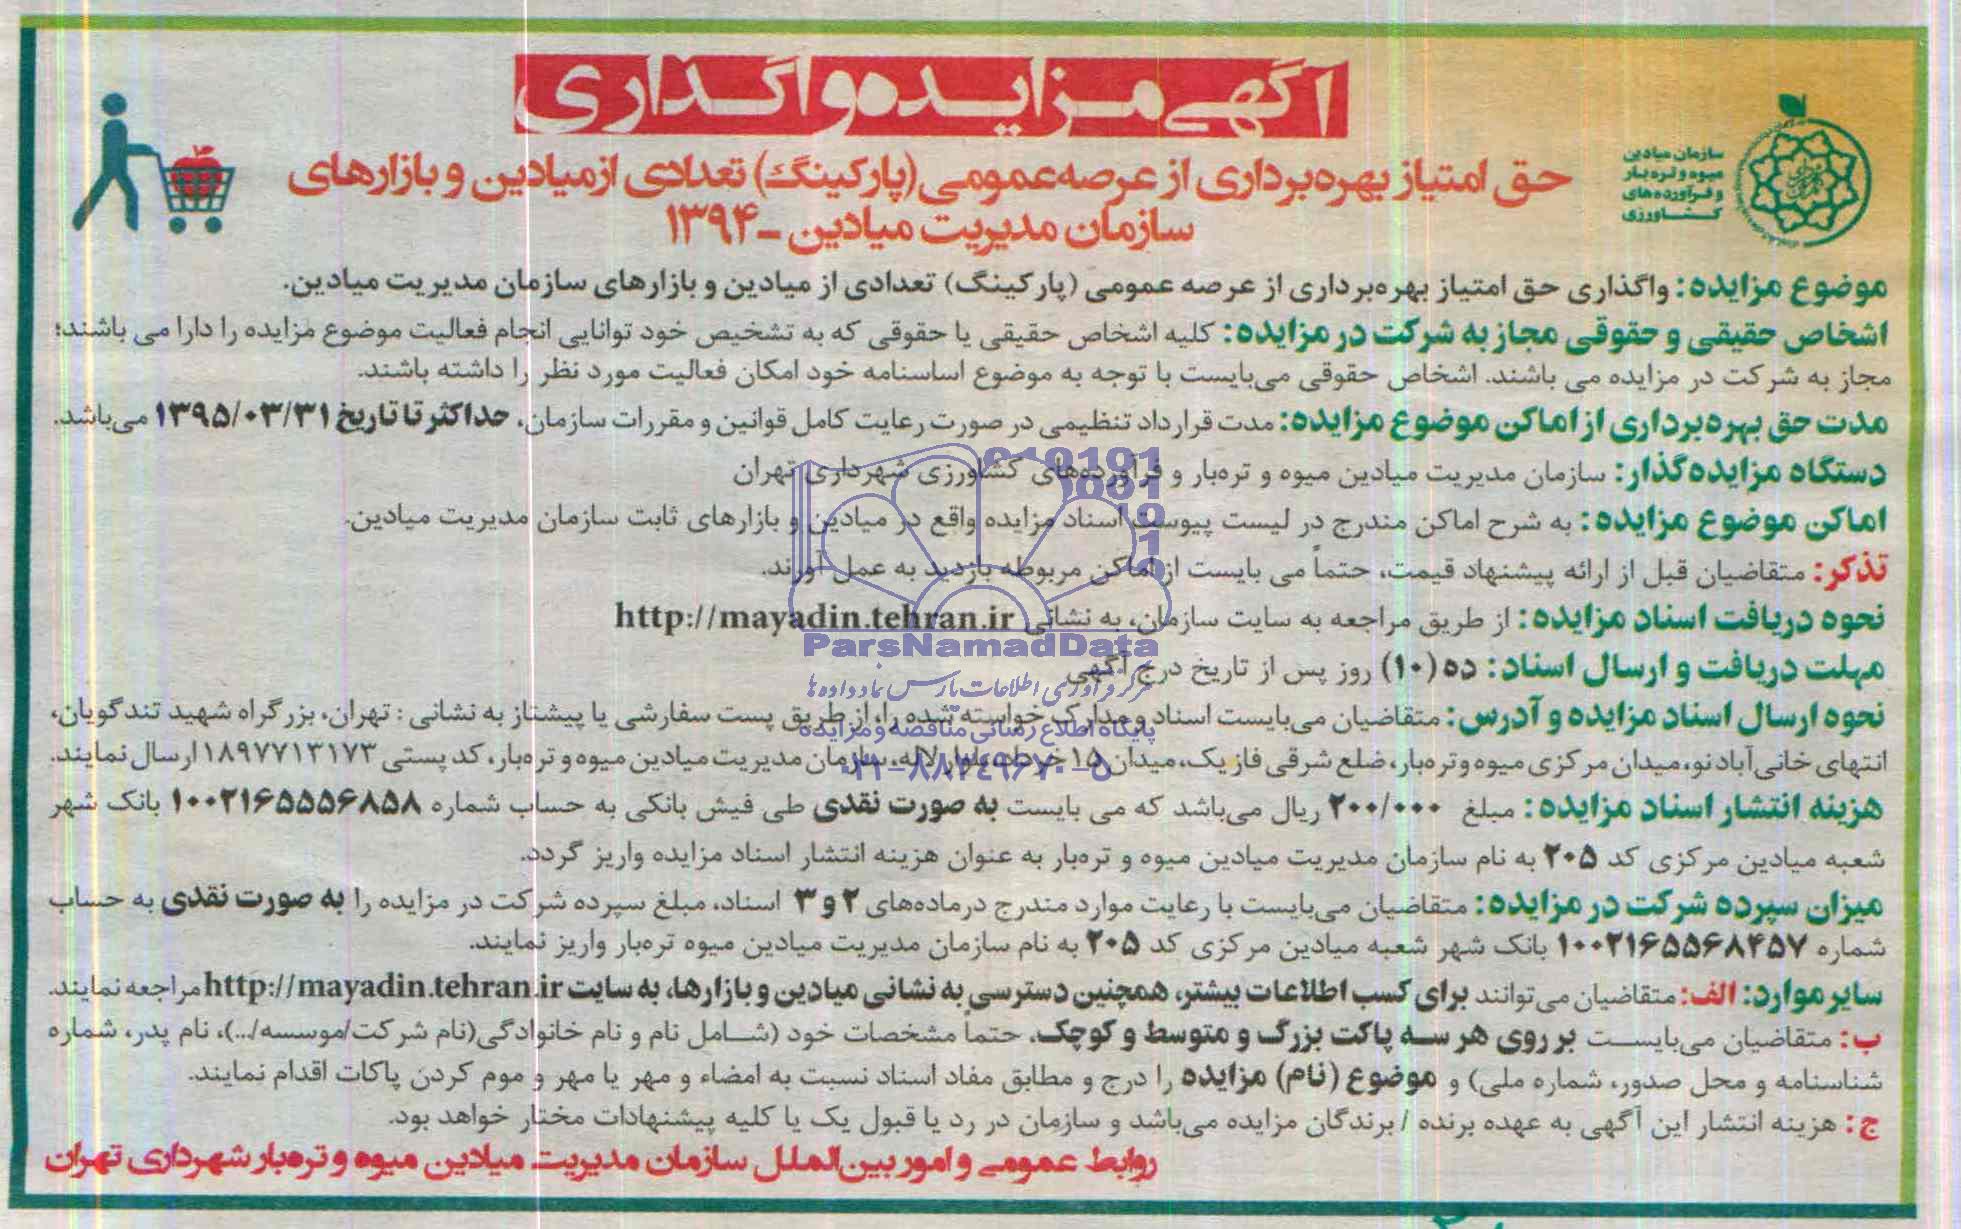 آگهی مزایده واگذاری
حق امتیاز بهره‌برداری از عرصه عمومی (پارکینگ) تعدادی از میادین و بازارهای
سازمان مدیریت میادین - ۱۳۹۴
سازمان میادین
میوه و تره‌بار
و فرآورده‌های
کشاورزی
موضوع مزایده: واگذاری حق امتیاز بهره‌برداری از عرصه عمومی (پارکینگ) تعدادی از میادین و بازارهای سازمان مدیریت میادین.
اشخاص حقیقی و حقوقی مجاز به شرکت در مزایده: کلیه اشخاص حقیقی یا حقوقی که به تشخیص خود توانایی انجام فعالیت موضوع مزایده را دارا می باشند؛
مجاز به شرکت در مزایده می باشند. اشخاص حقوقی می‌بایست با توجه به موضوع اساسنامه خود امکان فعالیت مورد نظر را داشته باشند.
مدت حق بهره‌برداری از اماکن موضوع مزایده: مدت قرارداد تنظیمی در صورت رعایت کامل قوانین و مقررات سازمان، حداکثر تا تاریخ ۱۳۹۵/۰۳/۳۱ می‌باشد.
دستگاه مزایده‌گذار: سازمان مدیریت میادین میوه و تره‌بار و فرآورده‌های کشاورزی شهرداری تهران
اماکن موضوع مزایده: به شرح اماکن مندرج در لیست پیوست اسناد مزایده واقع در میادین و بازارهای ثابت سازمان مدیریت میادین.
تذکر: متقاضیان قبل از ارائه پیشنهاد قیمت، حتماً می بایست از اماکن مربوطه بازدید به عمل آورند.
نحوه دریافت اسناد مزایده: از طریق مراجعه به سایت سازمان، به نشانی http://mayadin.tehran.ir
ParsNamadData
مهلت دریافت و ارسال اسناد: ده (۱۰) روز پس از تاریخ درج آگهی
مرکز فرآوری اطلاعات پارس نماد داده‌ها
نحوه ارسال اسناد مزایده و آدرس: متقاضیان می‌بایست اسناد و مدارک خواسته شده را، از طریق پست سفارشی یا پیشتاز به نشانی : تهران، بزرگراه شهید تندگویان،
پایگاه اطلاع رسانی مناقصه و مزایده
انتهای خانی‌آباد نو، میدان مرکزی میوه و تره‌بار، ضلع شرقی فاز یک، میدان ۱۵ خرداد، بلوار لاله، سازمان مدیریت میادین میوه و تره‌بار، کد پستی ۱۸۹۷۷۱۳۱۷۳ ارسال نمایند.
۰۲۱-۸۸۳۴۹۶۷۰-۵
هزینه انتشار اسناد مزایده: مبلغ ۲۰۰/۰۰۰ ریال می‌باشد که می بایست به صورت نقدی طی فیش بانکی به حساب شماره ۱۰۰۲۱۶۵۵۵۶۸۵۸ بانک شهر
شعبه میادین مرکزی کد ۲۰۵ به نام سازمان مدیریت میادین میوه و تره‌بار به عنوان هزینه انتشار اسناد مزایده واریز گردد.
میزان سپرده شرکت در مزایده: متقاضیان می‌بایست با رعایت موارد مندرج درماده‌های ۲ و ۳ اسناد، مبلغ سپرده شرکت در مزایده را به صورت نقدی به حساب
شماره ۱۰۰۲۱۶۵۵۶۸۴۵۷ بانک شهر شعبه میادین مرکزی کد ۲۰۵ به نام سازمان مدیریت میادین میوه تره‌بار واریز نمایند.
سایر موارد: الف: متقاضیان می‌توانند برای کسب اطلاعات بیشتر، همچنین دسترسی به نشانی میادین و بازارها، به سایت http://mayadin.tehran.ir مراجعه نمایند.
ب: متقاضیان می‌بایست بر روی هر سه پاکت بزرگ و متوسط و کوچک، حتماً مشخصات خود (شامل نام و نام خانوادگی(نام شرکت/موسسه/...)، نام پدر، شماره
شناسنامه و محل صدور، شماره ملی) و موضوع (نام) مزایده را درج و مطابق مفاد اسناد نسبت به امضاء و مهر یا مهر و موم کردن پاکات اقدام نمایند.
ج: هزینه انتشار این آگهی به عهده برنده / برندگان مزایده می‌باشد و سازمان در رد یا قبول یک یا کلیه پیشنهادات مختار خواهد بود.
روابط عمومی و امور بین‌الملل سازمان مدیریت میادین میوه و تره‌بار شهرداری تهران